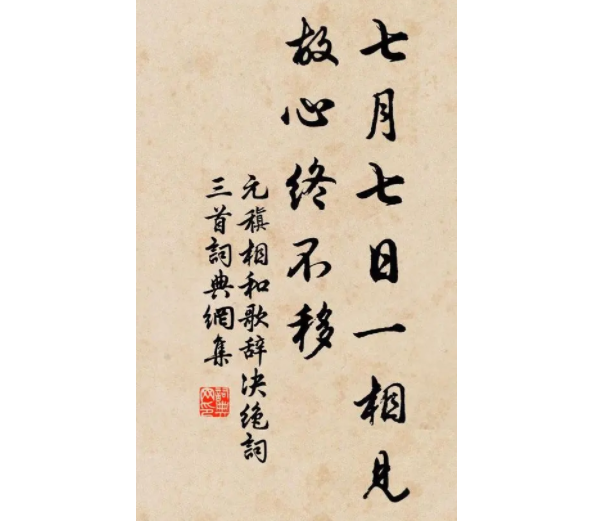 七月七日一相見
故心终不移
元稹相和歌辞决绝詞
三首詞典網集